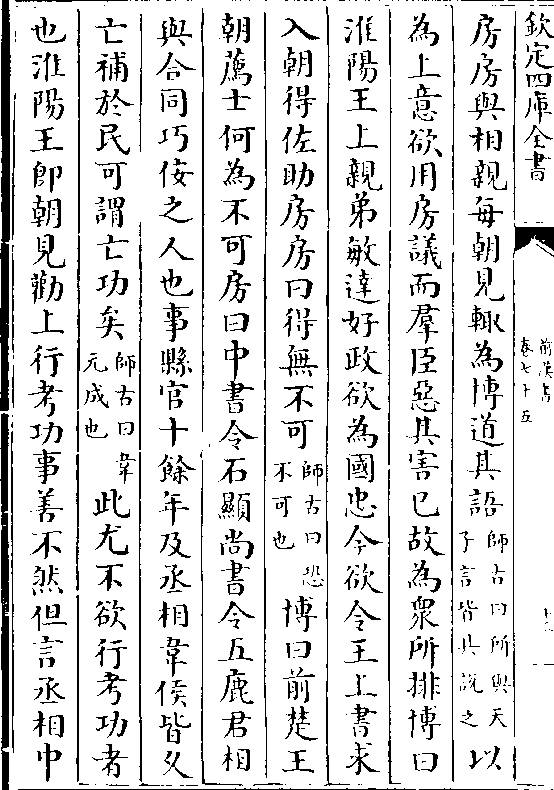 欽定四庫全書
前漢書
卷七十五
房房與相親每朝見輒為博道其語師古曰所與天子言皆具說之以
為上意欲用房議而羣臣惡其害己故為衆所排博曰
淮陽王上親弟敏達好政欲為國忠今欲令王上書求
入朝得佐助房房曰得無不可師古曰恐不可也博曰前楚王
朝薦士何為不可房曰中書令石顯尚書令五鹿君相
與合同巧佞之人也事縣官十餘年及丞相韋侯皆久
亡補於民可謂亡功矣師古曰韋元成也此尤不欲行考功者
也淮陽王即朝見勸上行考功事善不然但言丞相中